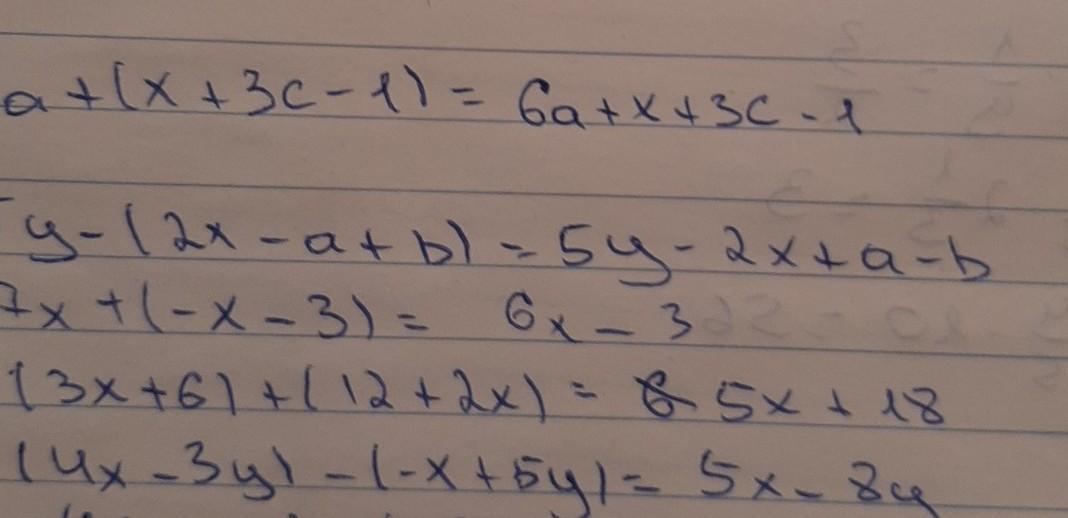 a + (x + 3c - 1) = 6a + x + 3c - 1
y - (2x - a + b) = 5y - 2x + a - b
7x + (-x - 3) = 6x - 3
(3x + 6) + (12 + 2x) = 5x + 18
(4x - 3y) - (-x + 5y) = 5x - 8y